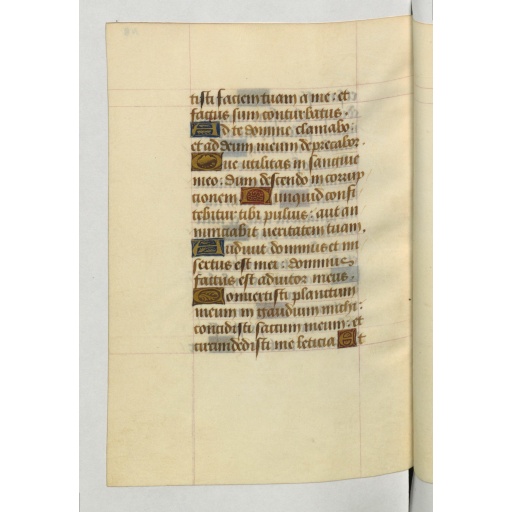 tisti faciem tuam a me: et
factus sum conturbatus.
Ad te domine clamabo:
et ad deum meum deprecabor.
Que utilitas in sanguine
meo: dum descendo in corrup
tionem. Nunquid confi
tebitur tibi pulvis: aut an
nunciabit veritatem tuam.
Audivit dominus et mi
sertus est mei: dominus
factus est adiutor meus.
Convertisti planctum
meum in gaudium michi:
concidisti saccum meum: et
circundedisti me leticia. Ut